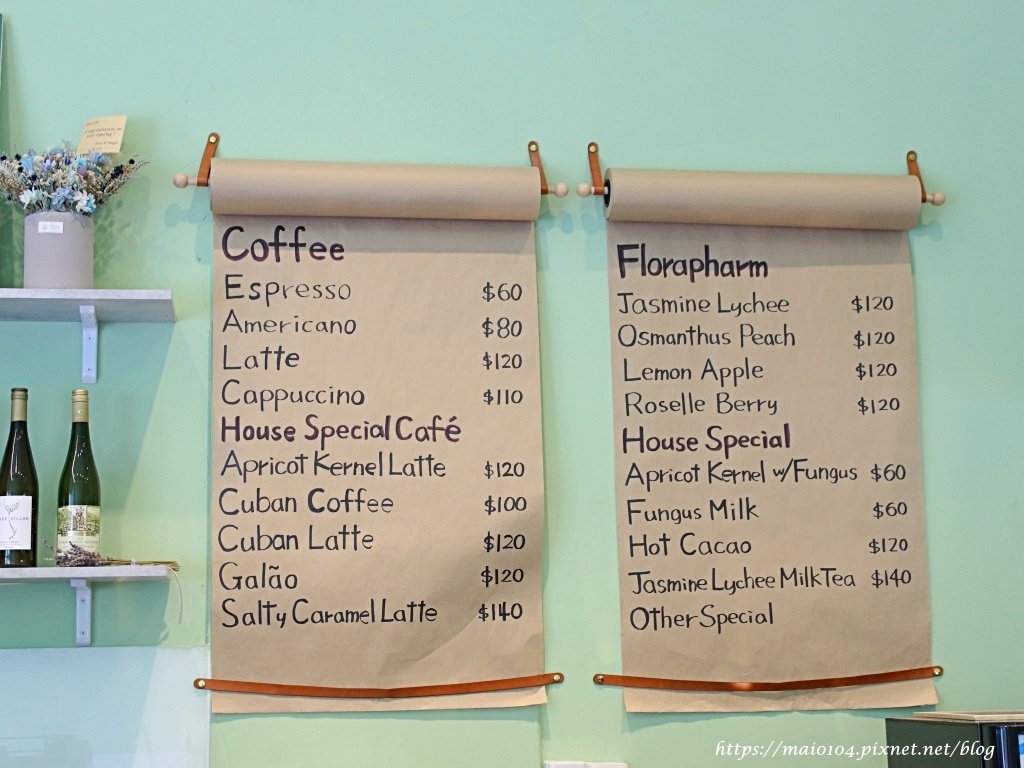 Coffee
Espresso $60
Americano $80
Latte $120
Cappuccino $110
House Special Café
Apricot Kernel Latte $120
Cuban Coffee $100
Cuban Latte $120
Galão $120
Salty Caramel Latte $140
Florapharm
Jasmine Lychee $120
Osmanthus Peach $120
Lemon Apple $120
Roselle Berry $120
House Special
Apricot Kernel w/Fungus $60
Fungus Milk $60
Hot Cacao $120
Jasmine Lychee Milk Tea $140
Other Special
https://maio104.pixnet.net/blog